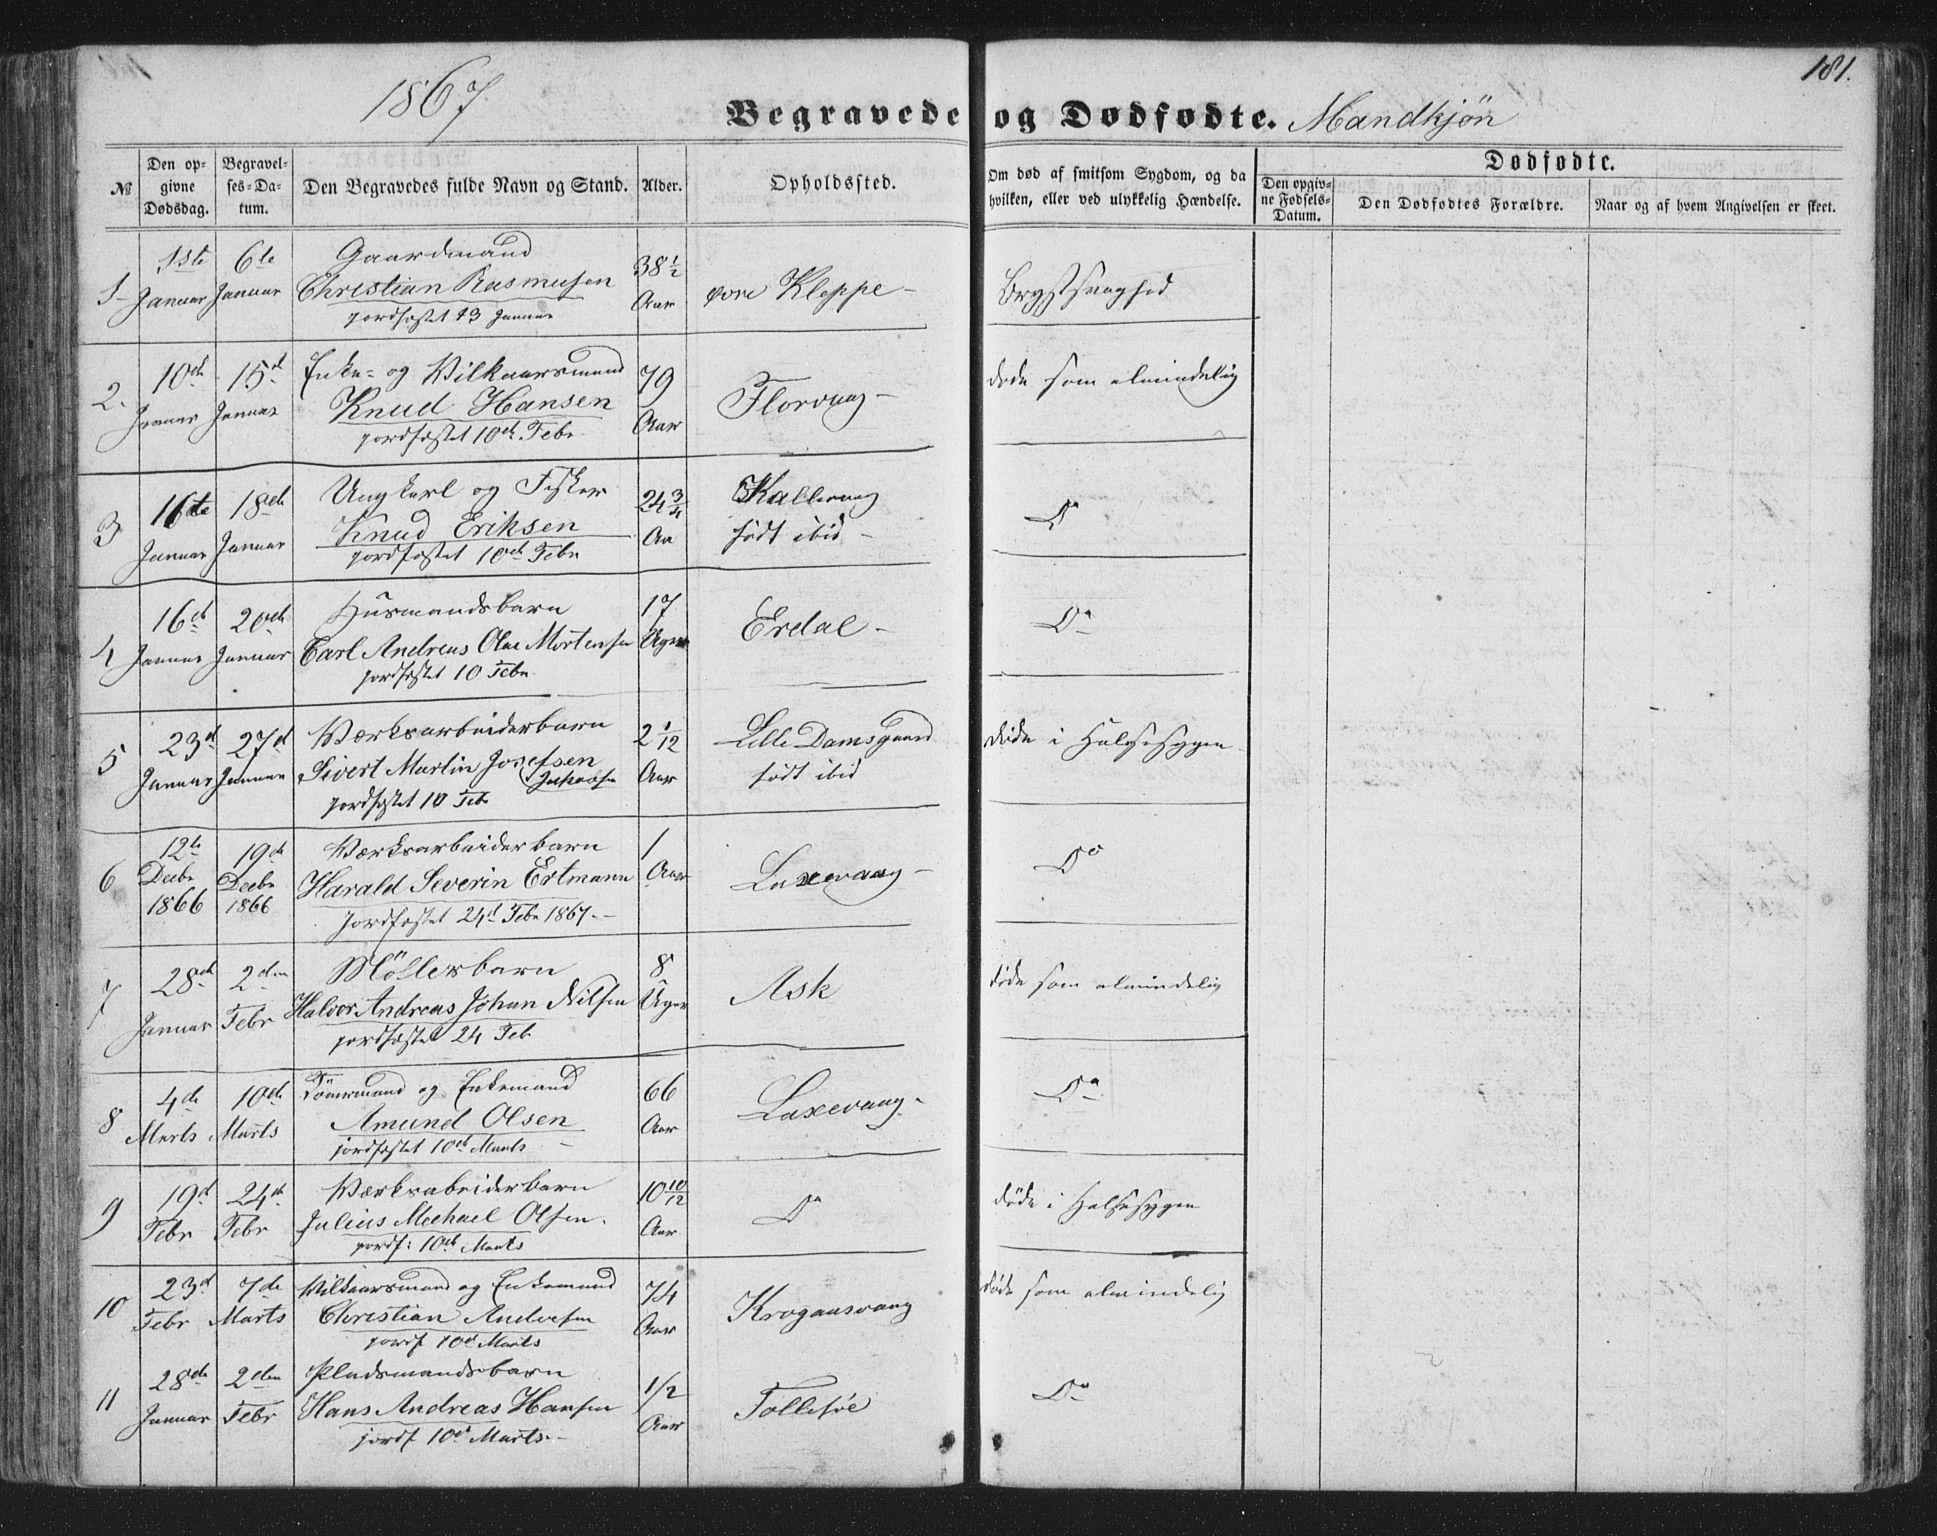 181.
1867
Begravede og Dødfødte. Mandkjøn
№
Den opgivne Dødsdag.
Begravelses-Datum.
Den Begravedes fulde Navn og Stand.
Alder.
Opholdssted.
Om død af smitsom Sygdom, og da hvilken, eller ved ulykkelig Hændelse.
Dødfødte.
Den opgivne Fødsels-Datum.
Den Dødfødtes Forældre.
Naar og af hvem Angivelsen er skeet.
1 1ste Januar 6te Januar Gaardmand 38 1/2 Aar øvre Kleppe - Brystsvaghed
Christian Rasmusen
jordfæstet 13 Januar
2. 10de Januar 15d Januar Enke- og Vilkaarsmand 79 Aar Florvaag - døde som almindelig
Knud Hansen
jordfæstet 10de Febr.
3 16de Januar 18de Januar Ungkarl og Fisker 24 3/4 Aa Kallevaag født ibid - Do
Knud Eriksen
jordfæstet 10de Febr
4 16de Januar 20de Januar Husmandsbarn 17 Uger Erdal - Do
Carl Andreas Olai Mortensen
jordfæstet 10 Febr.
5 23d Januar 27d Januar Værksarbeiderbarn 2 1/12 Aar Lille Damsgaard født ibid døde i Halsesygen
Sivert Martin Josefsen
jordfæstet 10 Feb
6 12te Decbr 1866 19de Decbr 1866 Værksarbeiderbarn 1 Aar Laxevaag - Do
Harald Severin Ertmann
jordfæstet 24d Febr 1867. -
7 28de Januar 2den Febr Möllerbarn 8 Uger Ask døde som almindelig
Halvor Andreas Johan Nilsen
jordfæstet 24 Feb
8 4de Marts 10de Marts Tömmermand og Enkemand 66 Aar Laxevaag. Do
Amund Olsen
jordfæstet 10de Marts -
9 19d Febr 24de Febr Værksabeiderbarn 10 10/12 Aar Do døde i Halsesygen
Julius Mechael Olsen.
jordf: 10de Marts
10 23d Febr 7de Marts Vilkaarsmand og Enkemand 74 Aar Krogaasvaag døde som almindelig
Christian Andersen
jordf 10d Marts
11 28de Januar 2den Febr Pladsmandsbarn 1/2 Aar Tollesøe Do
Hans Andreas Hansen
jordf 10d Marts. -